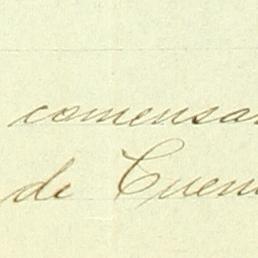 comensa
de Cuen